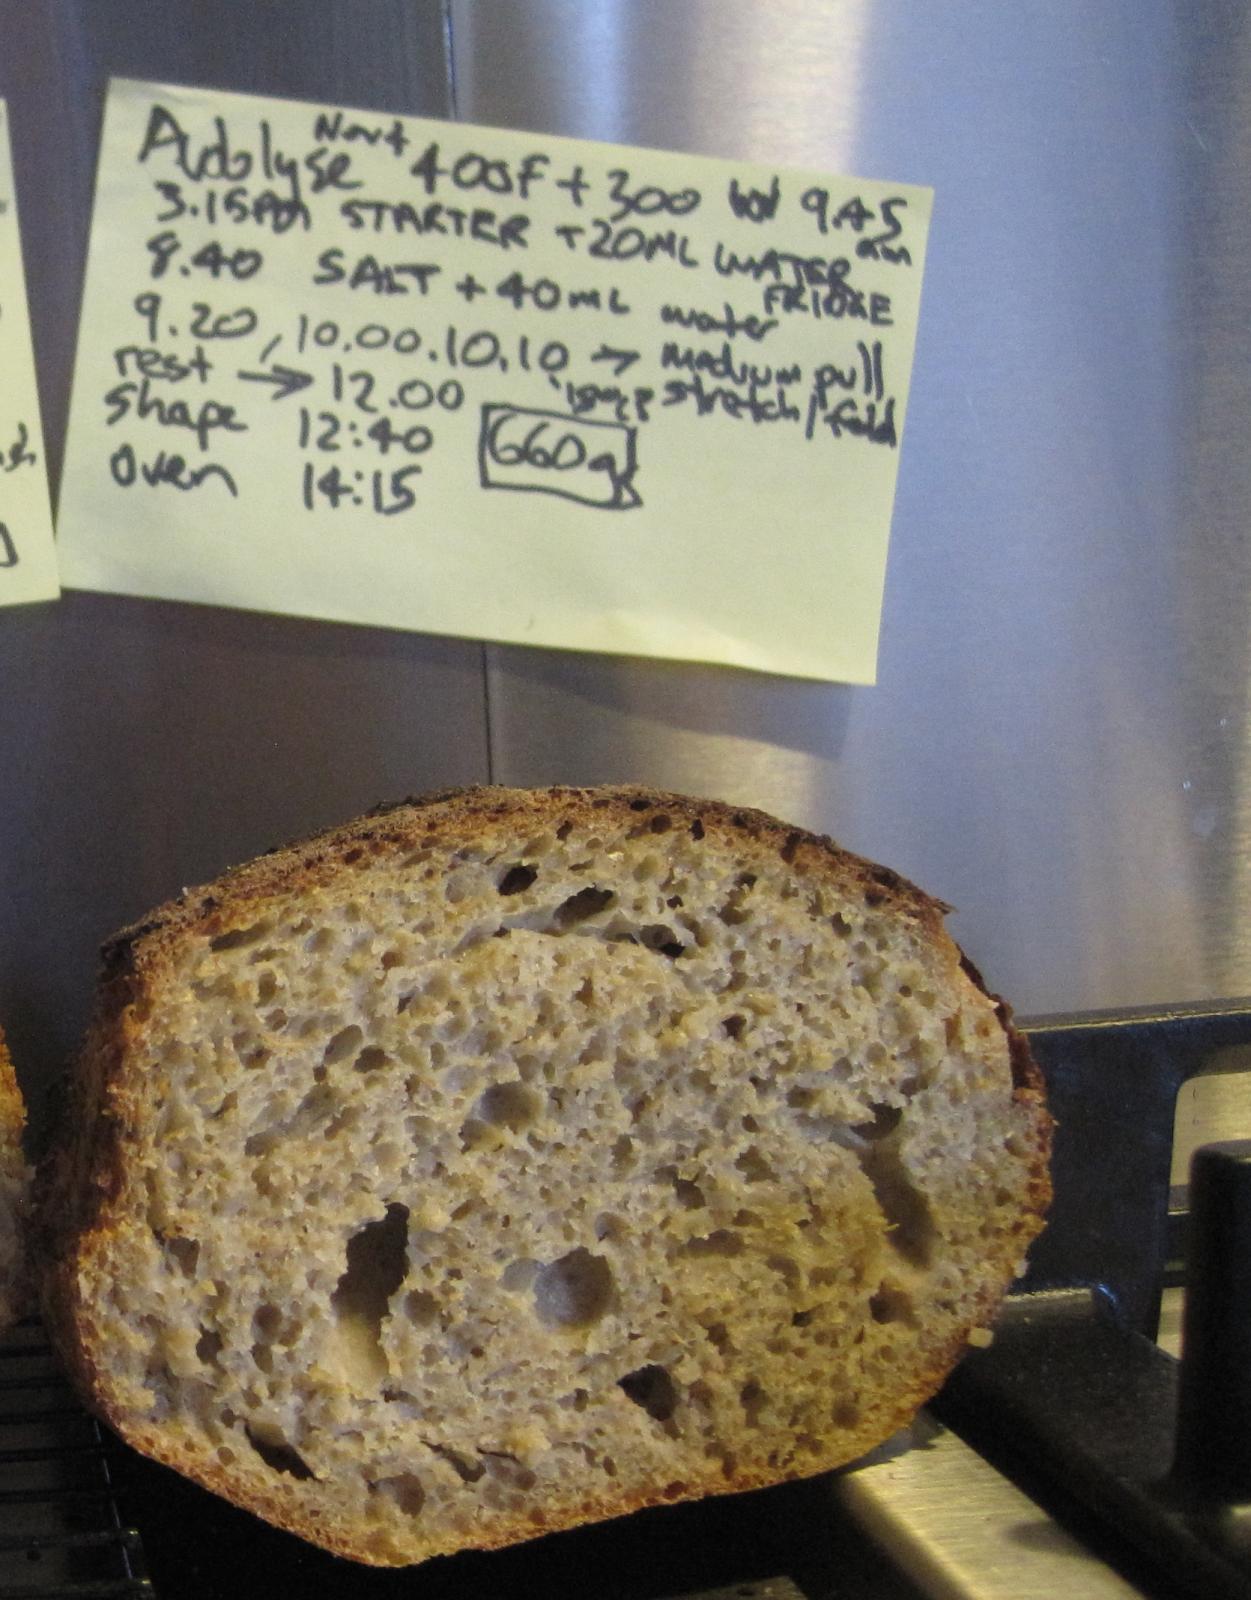 Autolyse 400F + 300 9.45 am
3.15pm STARTER +20ML WATER FRIDGE
8.40 SALT + 40mL water
9.20, 10.00. 10.10 → medium pull stretch/fold
rest → 12.00
shape 12:40 660g
oven 14:15